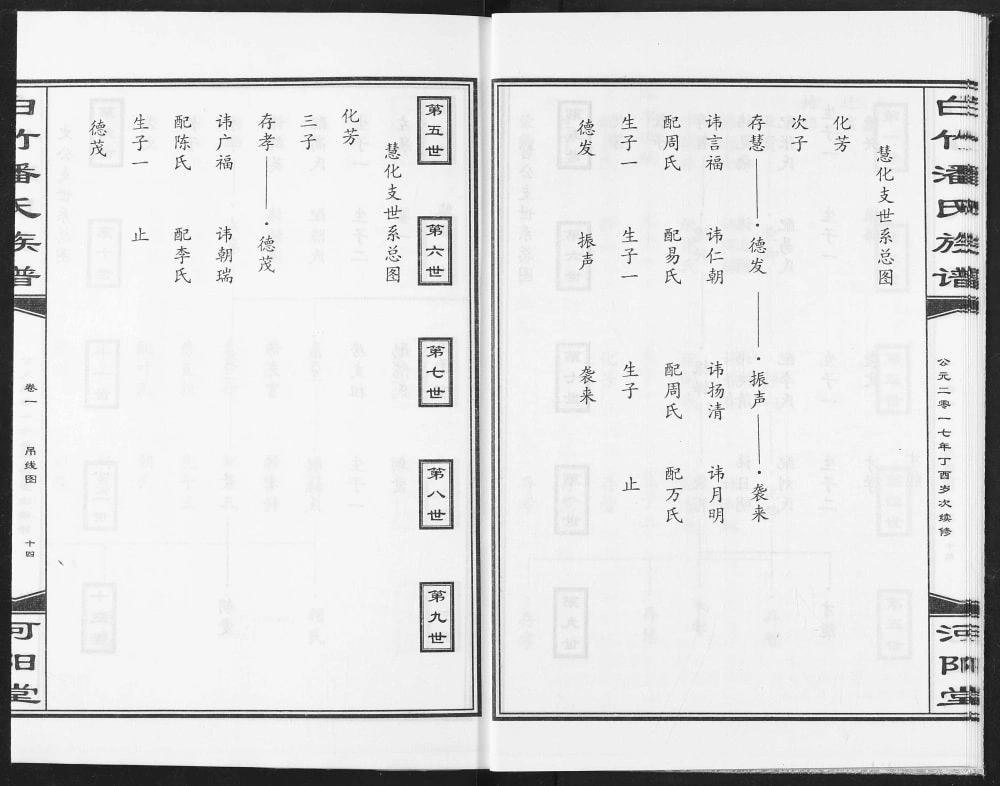 白竹潘氏族谱
公元二零一七年丁酉岁次续修
河阳堂
慧化支世系总图
化芳
次子
存慧 德发 振声 袭来
讳言福 讳仁朝 讳扬清 讳月明
配周氏 配易氏 配周氏 配万氏
生子一 生子一 生子 止
德发 振声 袭来
第五世
第六世
第七世
第八世
第九世
慧化支世系总图
化芳
三子
存孝 德茂
讳广福 讳朝瑞
配陈氏 配李氏
生子一 止
德茂
白竹潘氏族谱
卷一
吊线图
十四
河阳堂